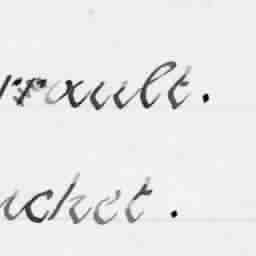 rrault.
ucket.